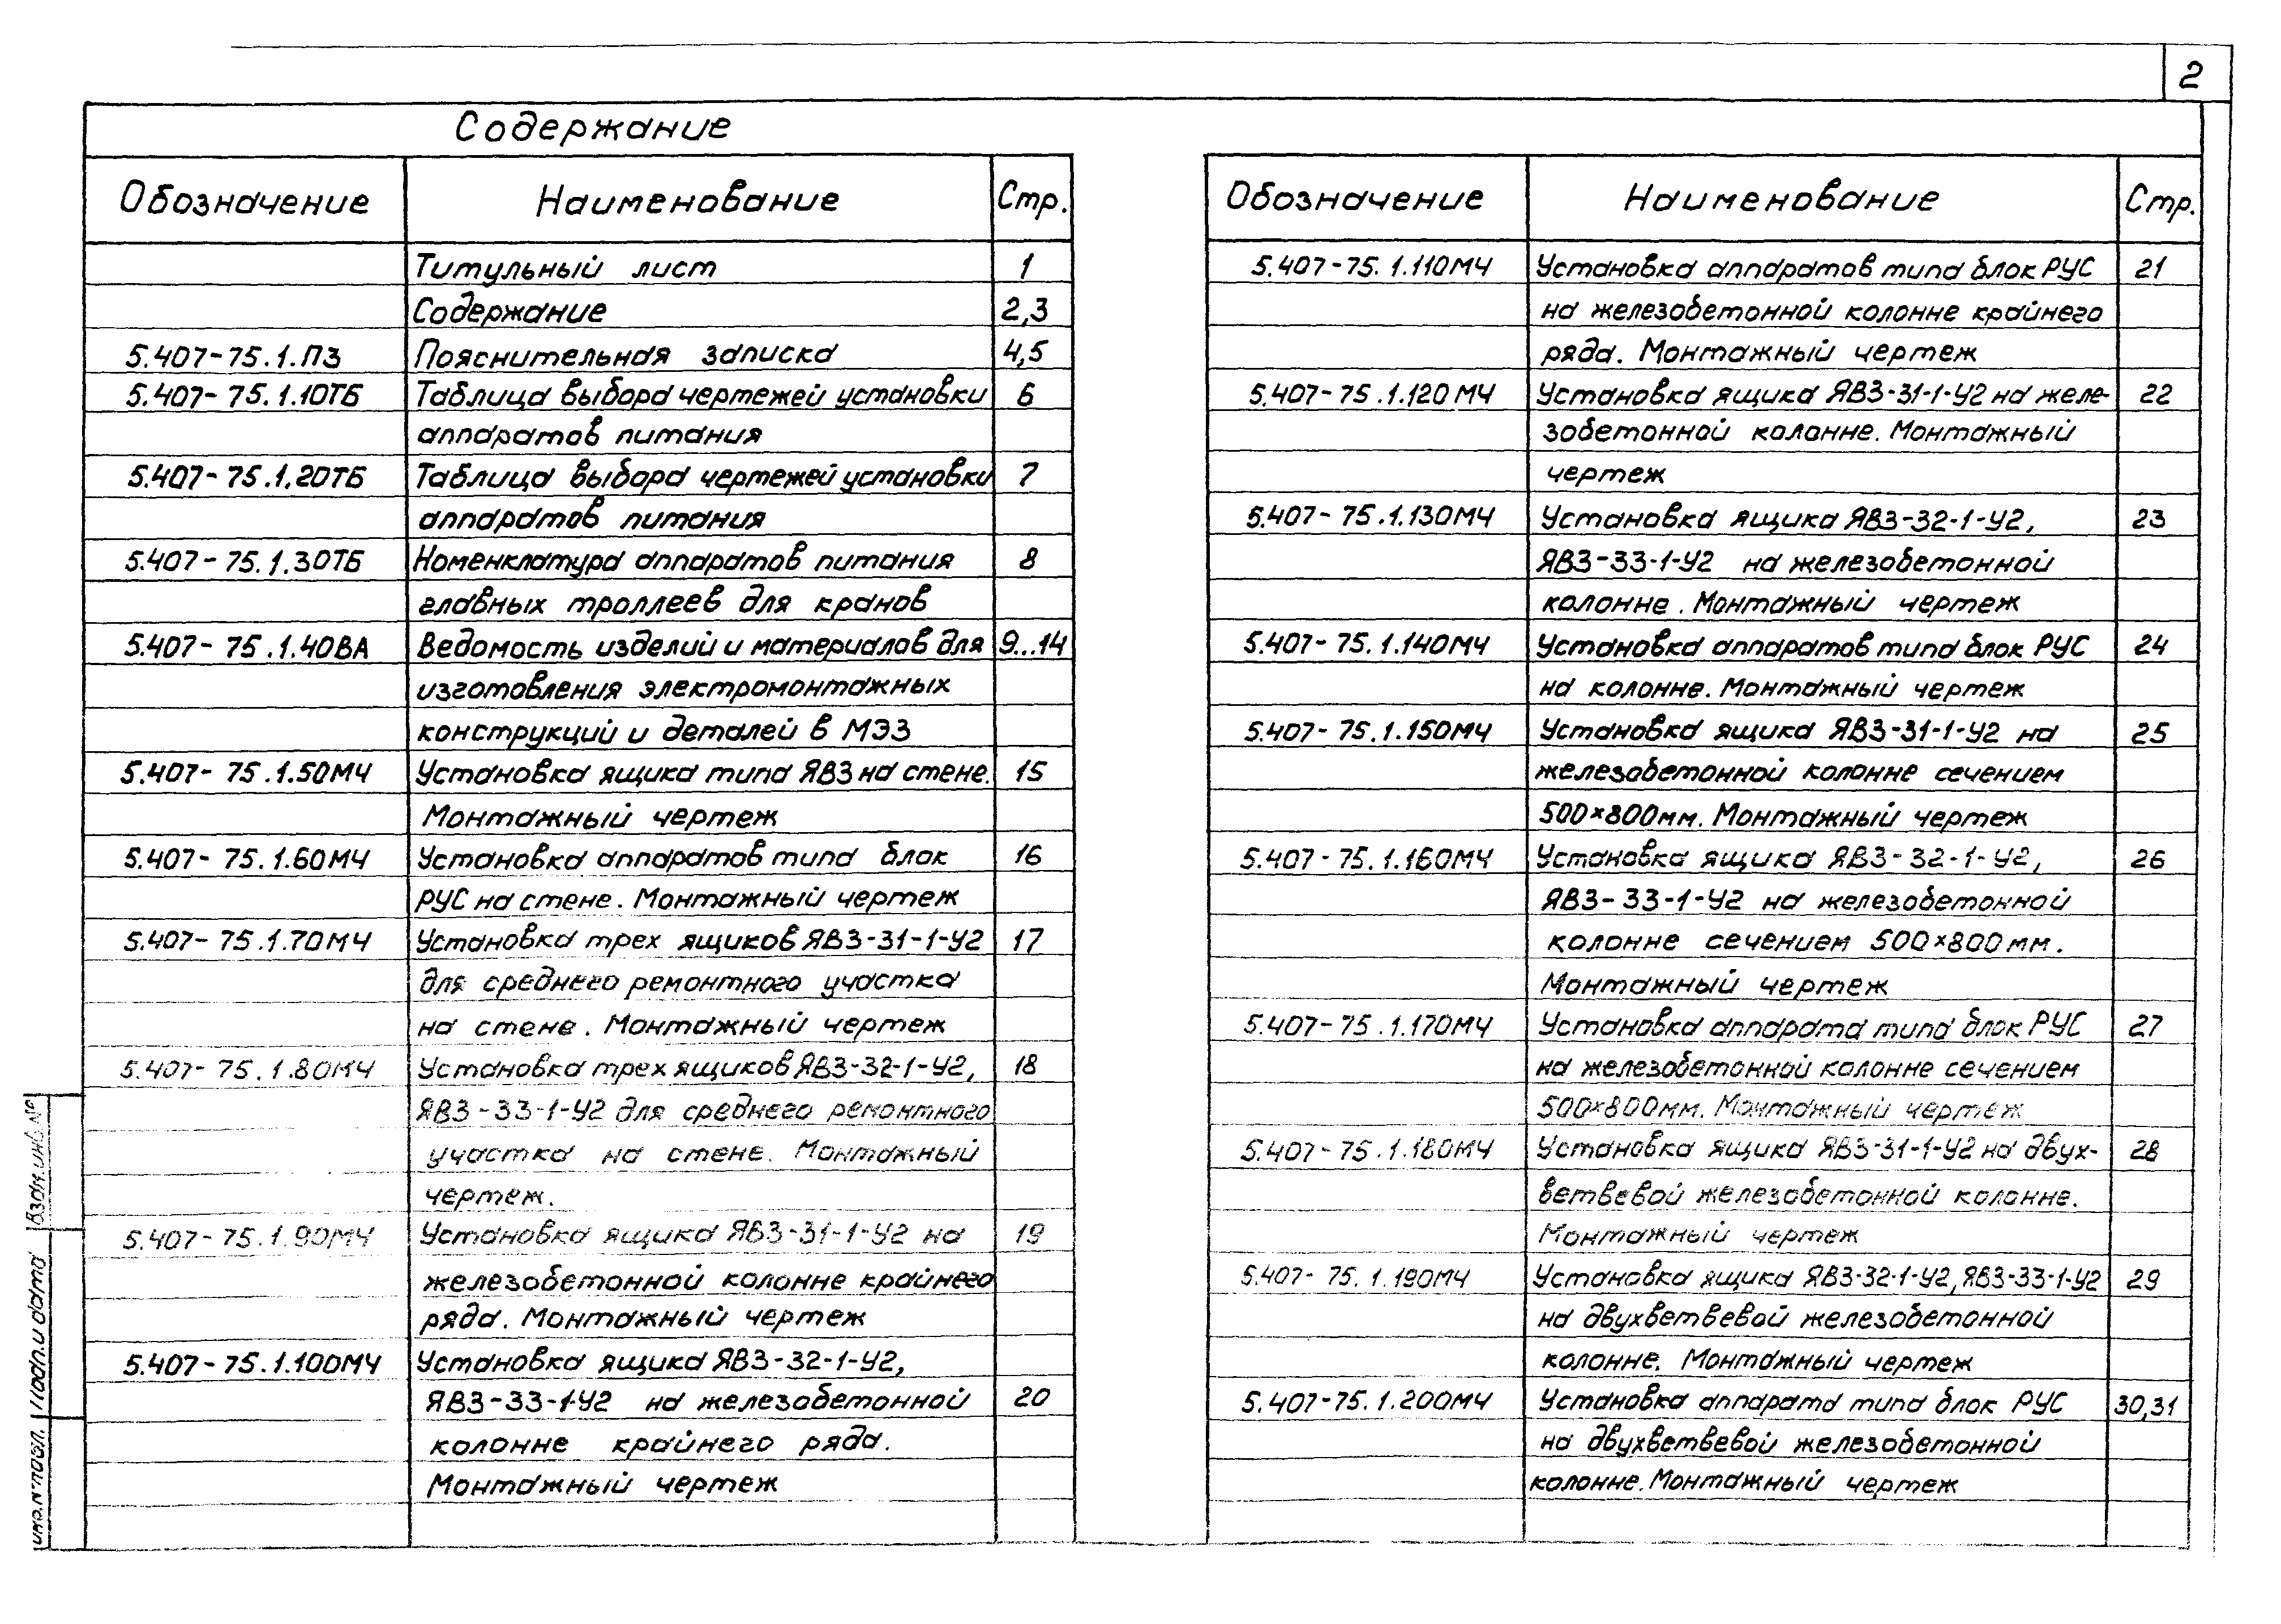 2
Содержание
Обозначение Наименование Стр.
Титульный лист 1
Содержание 2,3
5.407-75.1.ПЗ Пояснительная записка 4,5
5.407-75.1.10ТБ Таблица выбора чертежей установки 6
аппаратов питания
5.407-75.1.20ТБ Таблица выбора чертежей установки 7
аппаратов питания
5.407-75.1.30ТБ Номенклатура аппаратов питания 8
главных троллеев для кранов
5.407-75.1.40ВА Ведомость изделий и материалов для 9...14
изготовления электромонтажных
конструкций и деталей в МЭЗ
5.407-75.1.50МЧ Установка ящика типа ЯВЗ на стене. 15
Монтажный чертеж
5.407-75.1.60МЧ Установка аппаратов типа блок 16
РУС на стене. Монтажный чертеж
5.407-75.1.70МЧ Установка трех ящиков ЯВЗ-31-1-У2 17
для среднего ремонтного участка
на стене. Монтажный чертеж
5.407-75.1.80МЧ Установка трех ящиков ЯВЗ-32-1-У2, 18
ЯВЗ-33-1-У2 для среднего ремонтного
участка на стене. Монтажный
чертеж.
5.407-75.1.90МЧ Установка ящика ЯВЗ-31-1-У2 на 19
железобетонной колонне крайнего
ряда. Монтажный чертеж
5.407-75.1.100МЧ Установка ящика ЯВЗ-32-1-У2,
ЯВЗ-33-1-У2 на железобетонной 20
колонне крайнего ряда.
Монтажный чертеж
Обозначение Наименование Стр.
5.407-75.1.110МЧ Установка аппаратов типа блок РУС 21
на железобетонной колонне крайнего
ряда. Монтажный чертеж
5.407-75.1.120МЧ Установка ящика ЯВЗ-31-1-У2 на желе- 22
зобетонной колонне. Монтажный
чертеж
5.407-75.1.130МЧ Установка ящика ЯВЗ-32-1-У2, 23
ЯВЗ-33-1-У2 на железобетонной
колонне. Монтажный чертеж
5.407-75.1.140МЧ Установка аппаратов типа блок РУС 24
на колонне. Монтажный чертеж
5.407-75.1.150МЧ Установка ящика ЯВЗ-31-1-У2 на 25
железобетонной колонне сечением
500×800мм. Монтажный чертеж
5.407-75.1.160МЧ Установка ящика ЯВЗ-32-1-У2, 26
ЯВЗ-33-1-У2 на железобетонной
колонне сечением 500×800мм.
Монтажный чертеж
5.407-75.1.170МЧ Установка аппарата типа блок РУС 27
на железобетонной колонне сечением
500×800мм. Монтажный чертеж
5.407-75.1.180МЧ Установка ящика ЯВЗ-31-1-У2 на двух- 28
ветвевой железобетонной колонне.
Монтажный чертеж
5.407-75.1.190МЧ Установка ящика ЯВЗ-32-1-У2, ЯВЗ-33-1-У2 29
на двухветвевой железобетонной
колонне. Монтажный чертеж
5.407-75.1.200МЧ Установка аппарата типа блок РУС 30,31
на двухветвевой железобетонной
колонне. Монтажный чертеж
Взам.инв.№
Подп.и дата
Инв.№подл.